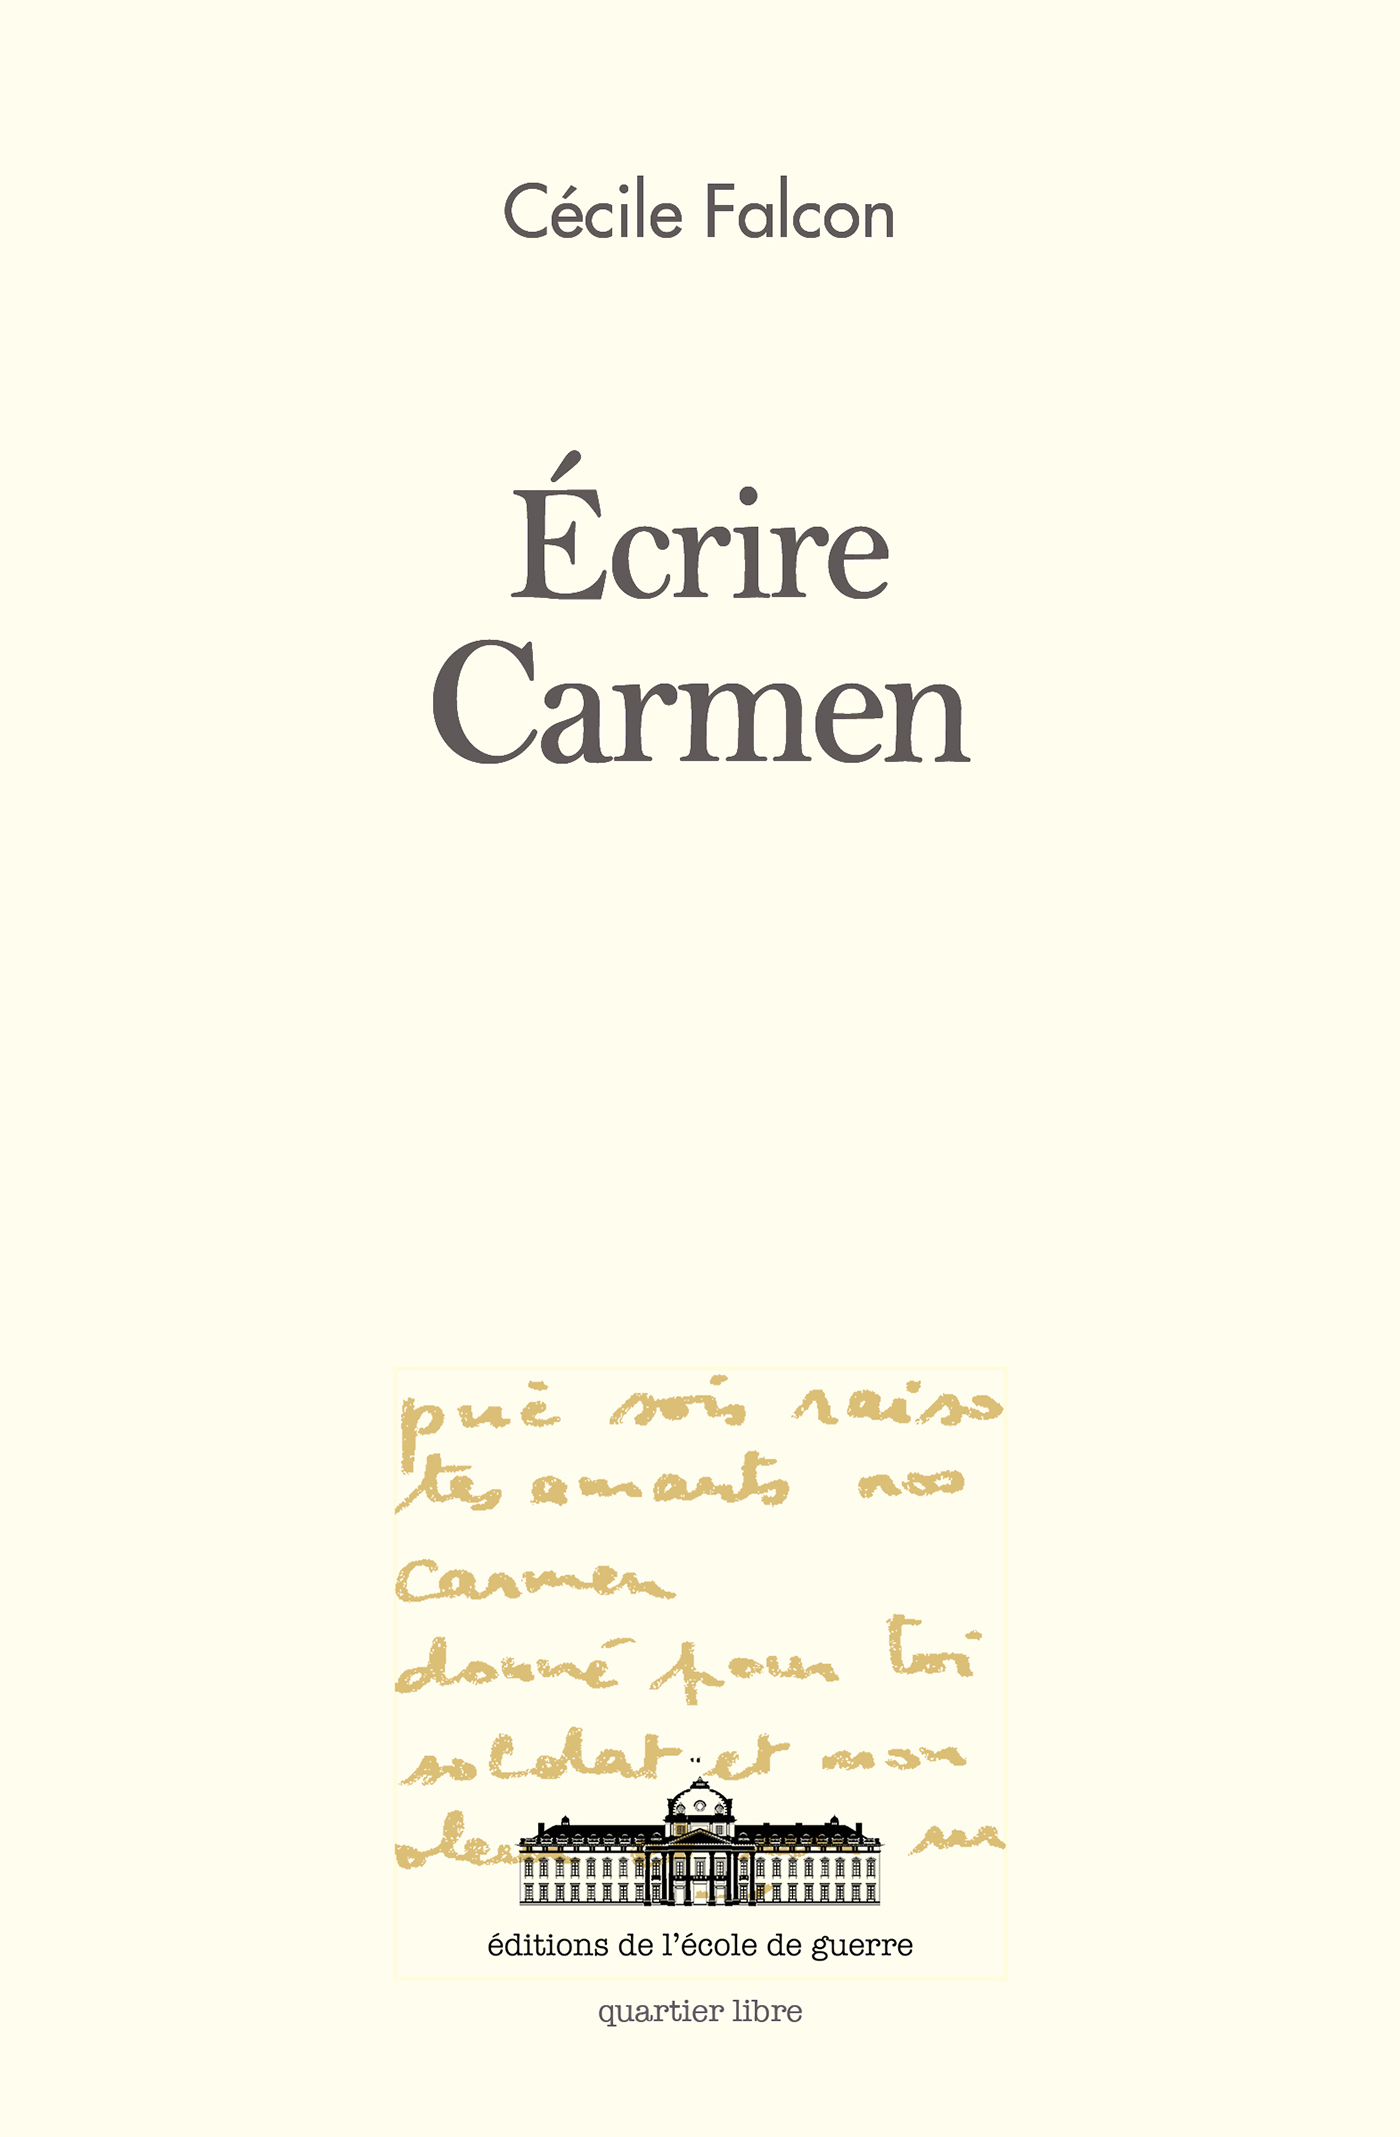 Cécile Falcon
Écrire
Carmen
puè sois raiso
tes amants nos
Carmen
donné pour toi
soldat et mon
éditions de l'école de guerre
quartier libre